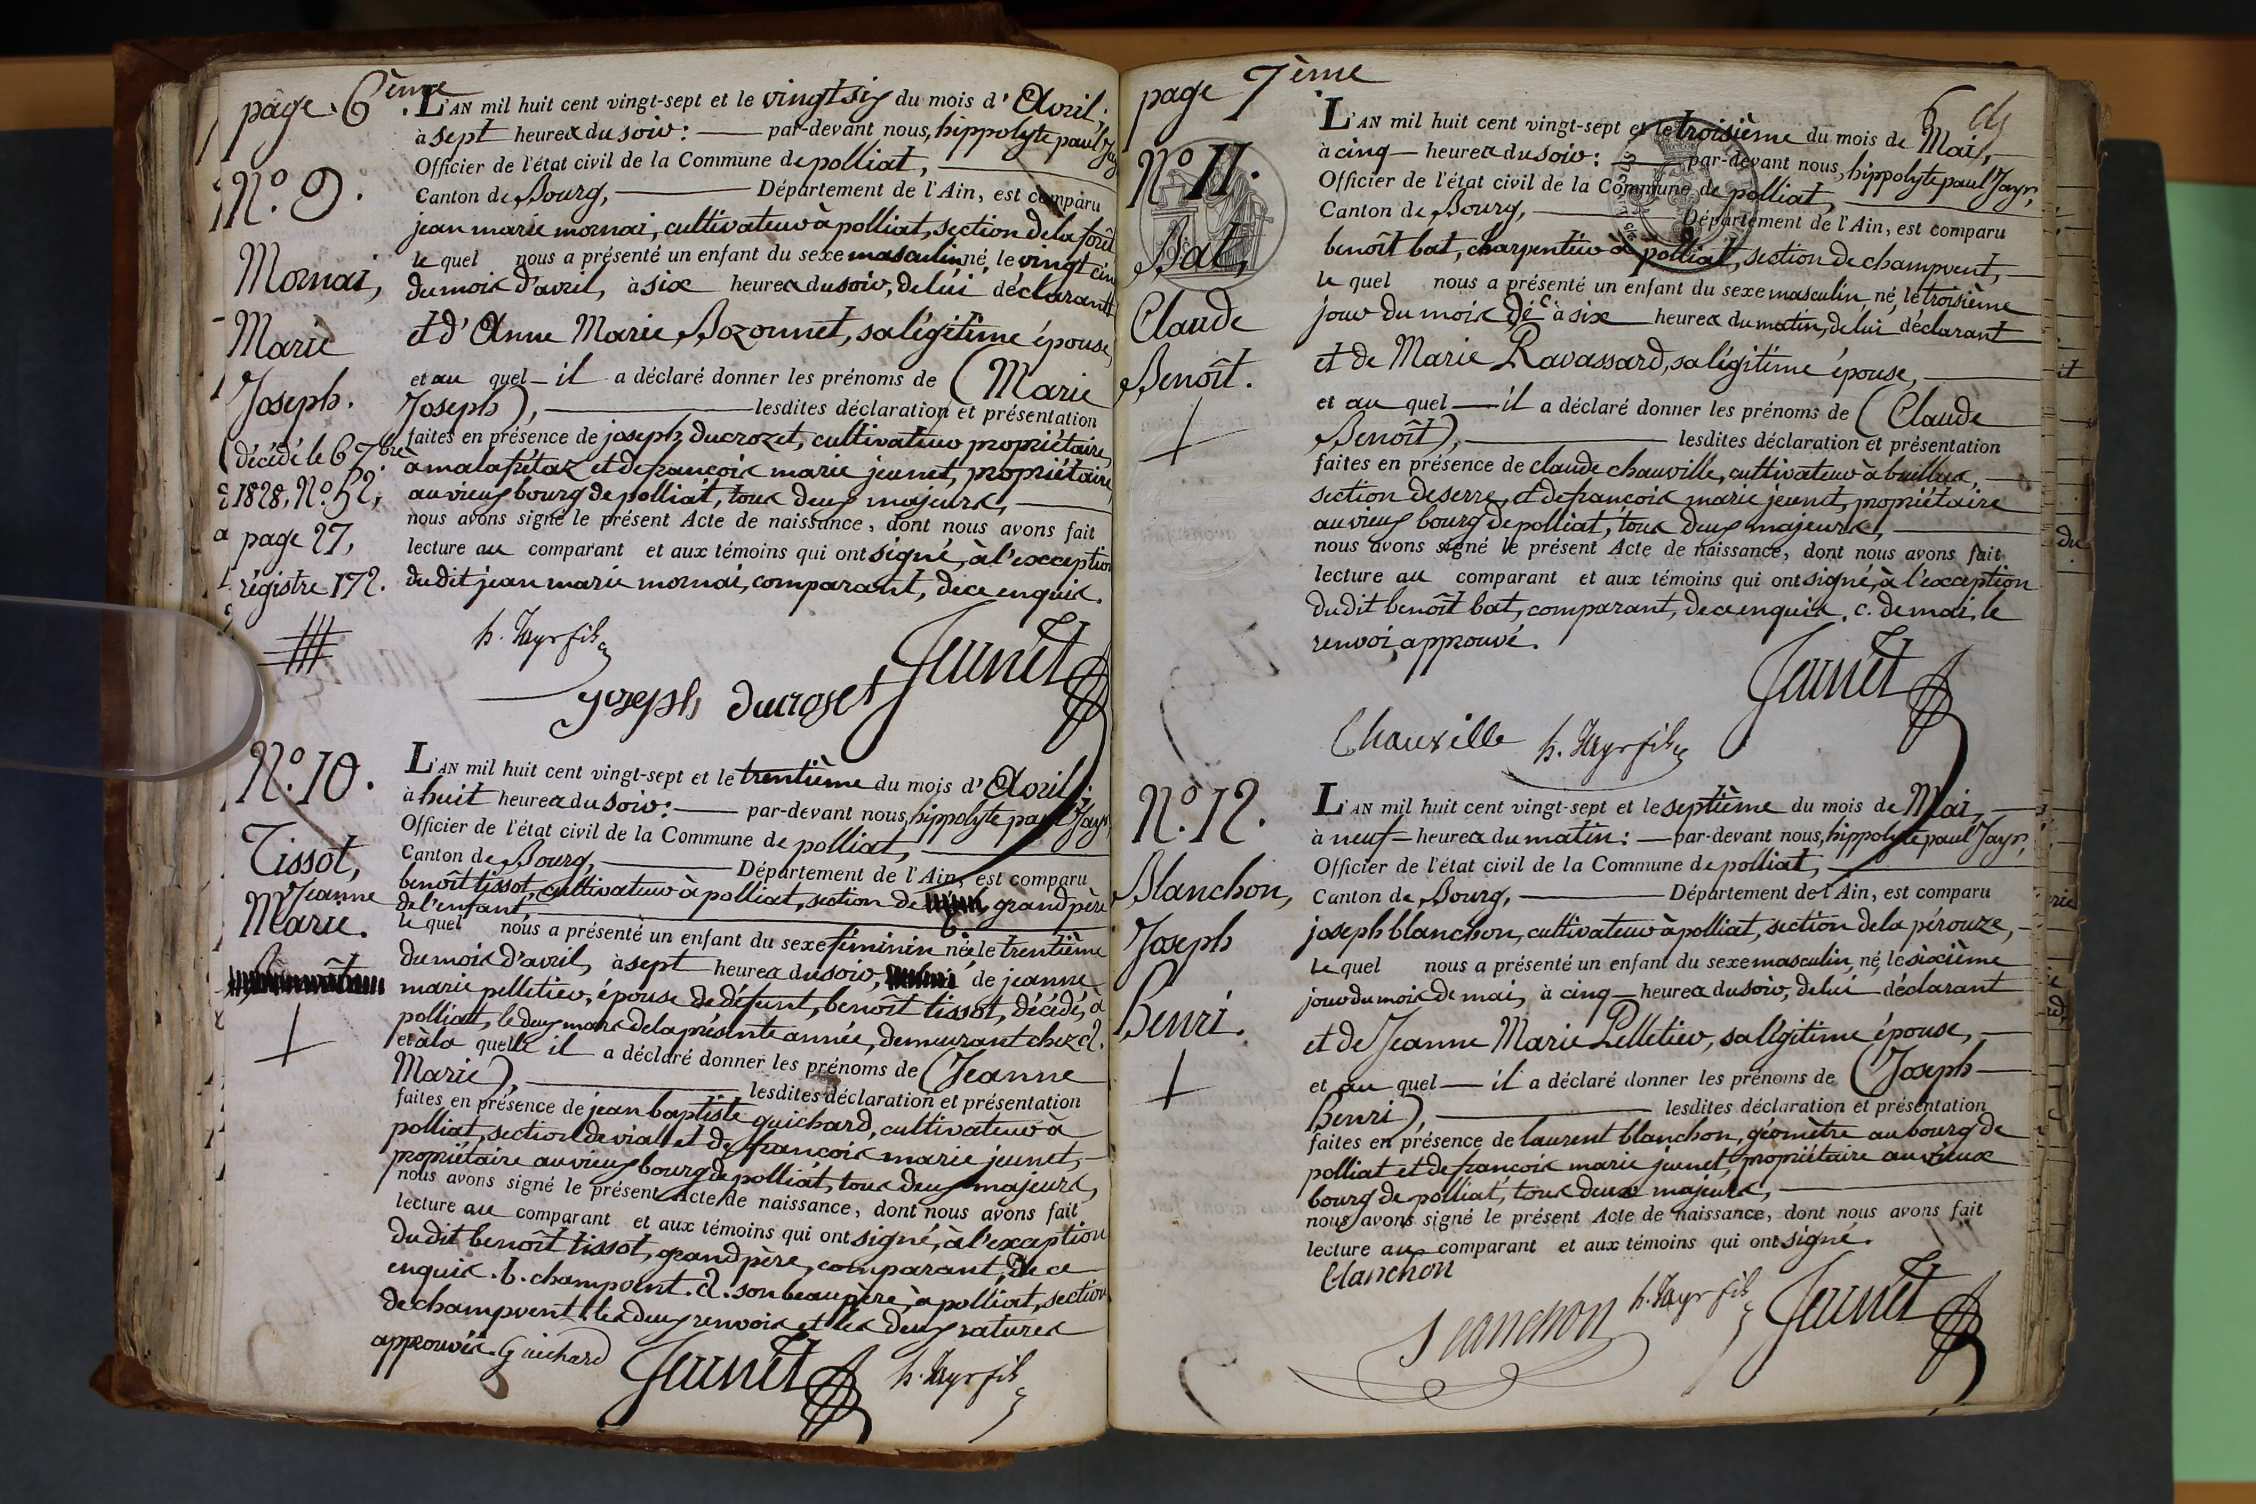 page 6ème
N.º 9.
Mornai,
Marie
Joseph.
(décédé le 6 7bre
1828, N.º 52,
page 27,
régistre 172.
L'AN mil huit cent vingt-sept et le vingt six du mois d'Avril,
à sept heures du soir: par-devant nous, hippolyte paul Jayr
Officier de l'état civil de la Commune de polliat,
Canton de Bourg, Département de l'Ain, est comparu
jean marie mornai, cultivateur à polliat, section de la forêt
le quel nous a présenté un enfant du sexe masculin né, le vingt cinq
du mois d'avril, à six heures du soir, de lui déclarant
et d'Anne Marie Bozonnet, sa légitime épouse,
et au quel il a déclaré donner les prénoms de (Marie
Joseph), lesdites déclaration et présentation
faites en présence de joseph ducrozet, cultivateur propriétaire,
à malafrétaz et de françois marie jeunet, propriétaire,
au vieux bourg de polliat, tous deux majeurs,
nous avons signé le présent Acte de naissance, dont nous avons fait
lecture au comparant et aux témoins qui ont signé, à l'exception
du dit jean marie mornai, comparant, de ce enquis.
h. Jayr fils
Jeunet
joseph ducroset
N.º 10.
Tissot,
Jeanne
Marie.
L'AN mil huit cent vingt-sept et le trentième du mois d'Avril,
à huit heures du soir: par-devant nous, hippolyte paul Jayr,
Officier de l'état civil de la Commune de polliat,
Canton de Bourg, Département de l'Ain, est comparu
benoît tissot, cultivateur à polliat, section de b. grand père
de l'enfant
le quel nous a présenté un enfant du sexe féminin née, le trentième
du mois d'avril, à sept heures du soir, de jeanne
marie pelletier, épouse de défunt, benoît tissot, décédé, à
polliat, le deux mars de la présente année, demeurant chez 2.
et à la quelle il a déclaré donner les prénoms de (Jeanne
Marie), lesdites déclaration et présentation
faites en présence de jean baptiste guichard, cultivateur à
polliat, section de vial et de françois marie jeunet,
propriétaire au vieux bourg de polliat, tous deux majeurs,
nous avons signé le présent Acte de naissance, dont nous avons fait
lecture au comparant et aux témoins qui ont signé, à l'exception
du dit benoît tissot, grand père, comparant, de ce
enquis. b. champvent. 2. son beau père, à polliat, section
de champvent, les deux renvois et les deux ratures
approuvés. Guichard
Jeunet
h. Jayr fils
page 7ème
N.º 11.
Bat,
Claude
Benoît.
L'AN mil huit cent vingt-sept et le troisième du mois de Mai,
à cinq heures du soir: par-devant nous, hippolyte paul Jayr,
Officier de l'état civil de la Commune de polliat,
Canton de Bourg, Département de l'Ain, est comparu
benoît bat, charpentier à polliat, section de champvent,
le quel nous a présenté un enfant du sexe masculin, né, le troisième
jour du mois de c à six heures du matin, de lui déclarant
et de Marie Ravassard, sa légitime épouse,
et au quel il a déclaré donner les prénoms de (Claude
Benoît), lesdites déclaration et présentation
faites en présence de claude chauville, cultivateur à buellas,
section de serre, et de françois marie jeunet, propriétaire
au vieux bourg de polliat, tous deux majeurs,
nous avons signé le présent Acte de naissance, dont nous avons fait
lecture au comparant et aux témoins qui ont signé, à l'exception
du dit benoît bat, comparant, de ce enquis. c. de mai, le
renvoi approuvé.
Jeunet
Chauville
h. Jayr fils
N.º 12.
Blanchon,
Joseph
Henri.
L'AN mil huit cent vingt-sept et le septième du mois de Mai,
à neuf heures du matin: par-devant nous, hippolyte paul Jayr,
Officier de l'état civil de la Commune de polliat,
Canton de Bourg, Département de l'Ain, est comparu
joseph blanchon, cultivateur à polliat, section de la pérouze,
le quel nous a présenté un enfant du sexe masculin, né, le sixième
jour du mois de mai, à cinq heures du soir, de lui déclarant
et de Jeanne Marie Pelletier, sa légitime épouse,
et au quel il a déclaré donner les prénoms de (Joseph
Henri), lesdites déclaration et présentation
faites en présence de laurent blanchon, géomètre au bourg de
polliat et de françois marie jeunet, propriétaire au vieux
bourg de polliat, tous deux majeurs,
nous avons signé le présent Acte de naissance, dont nous avons fait
lecture au comparant et aux témoins qui ont signé.
blanchon
h. Jayr fils
Jeunet